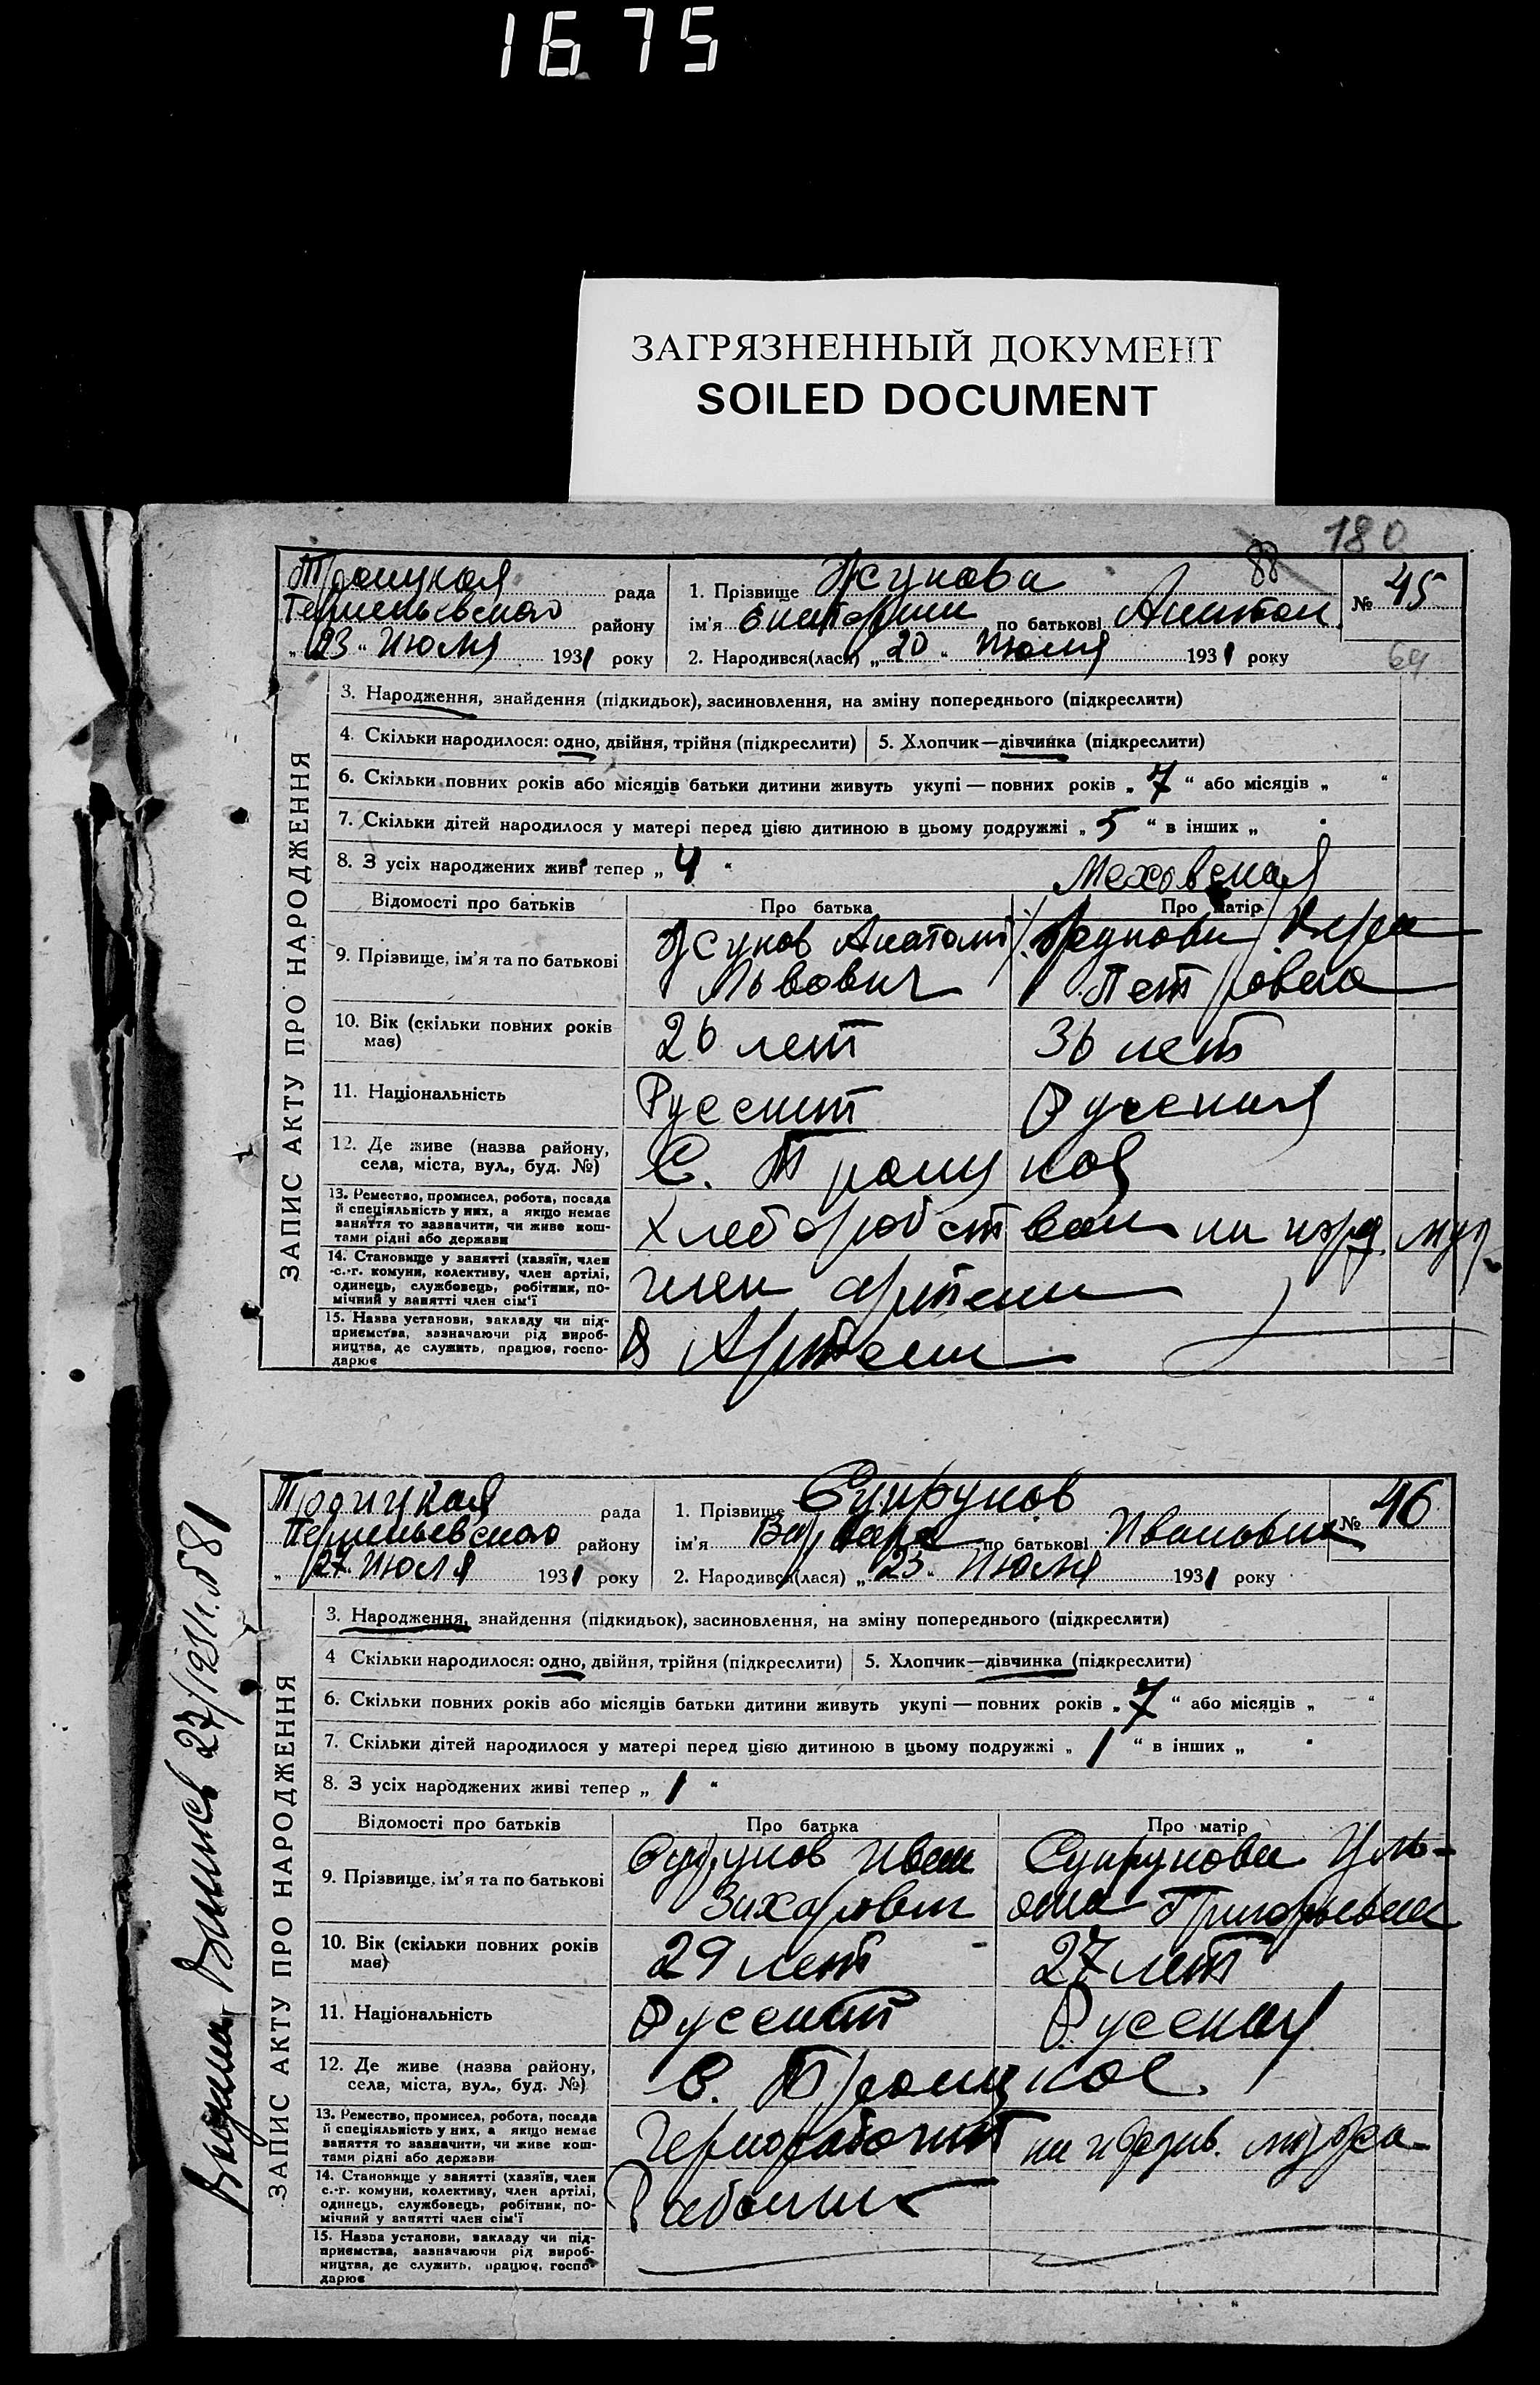 1675
ЗАГРЯЗНЕННЫЙ ДОКУМЕНТ
SOILED DOCUMENT
180
88
Троицкая рада
района району
„23“ Июля 1931 року
1. Прізвище Жукова
ім'я Екатерина по батькові Анатол.
2. Народився(лася) „20“ Июля 1931 року
№ 45
69
ЗАПИС АКТУ ПРО НАРОДЖЕННЯ
3. Народження, знайдення (підкидьок), засиновлення, на зміну попереднього (підкреслити)
4. Скільки народилося: одно, двійня, трійня (підкреслити) 5. Хлопчик—дівчинка (підкреслити)
6. Скільки повних років або місяців батьки дитини живуть укупі — повних років „7“ або місяців „ “
7. Скільки дітей народилося у матері перед цією дитиною в цьому подружжі „5“ в інших „ “
8. З усіх народжених живі тепер „4“
Меховская
Відомості про батьків Про батька Про матір
9. Прізвище, ім'я та по батькові
Жуков Анатолий
Львович
Вера
Петровна
10. Вік (скільки повних років має) 26 лет 36 лет
11. Національність Русский Русская
12. Де живе (назва району, села, міста, вул., буд. №) С. Троицкое
13. Ремество, промисел, робота, посада
й спеціяльність у них, а якщо немає
заняття то зазначити, чи живе кош-
тами рідні або держави
Хлеборобством на ижд. муж.
14. Становище у занятті (хазяїн, член
с.-г. комуни, колективу, член артілі,
одинець, службовець, робітник, по-
мічний у занятті член сім'ї
член артели
15. Назва установи, закладу чи під-
приємства, зазначаючи рід вироб-
ництва, де служить, працює, госпо-
дарює
В Артели
Троицкая рада
району
„27“ Июля 1931 року
1. Прізвище Супрунов
ім'я Варвара по батькові Ивановна
2. Народився(лася) „23“ Июля 1931 року
№ 46
ЗАПИС АКТУ ПРО НАРОДЖЕННЯ
3. Народження, знайдення (підкидьок), засиновлення, на зміну попереднього (підкреслити)
4 Скільки народилося: одно, двійня, трійня (підкреслити) 5. Хлопчик—дівчинка (підкреслити)
6. Скільки повних років або місяців батьки дитини живуть укупі — повних років „7“ або місяців „ — “
7. Скільки дітей народилося у матері перед цією дитиною в цьому подружжі „1“ в інших „ “
8. З усіх народжених живі тепер „1“
Відомості про батьків Про батька Про матір
9. Прізвище, ім'я та по батькові
Супрунов Иван
Захарович
Супрунова Уль-
яна Григорьевна
10. Вік (скільки повних років має) 29 лет 27 лет
11. Національність Русский Русская
12. Де живе (назва району, села, міста, вул., буд. №) С. Троицкое.
13. Ремество, промисел, робота, посада
й спеціяльність у них, а якщо немає
заняття то зазначити, чи живе кош-
тами рідні або держави
Чернорабочий на иждив. мужа
14. Становище у занятті (хазяїн, член
с.-г. комуни, колективу, член артілі,
одинець, службовець, робітник, по-
мічний у занятті член сім'ї
Рабочий
15. Назва установи, закладу чи під-
приємства, зазначаючи рід вироб-
ництва, де служить, працює, госпо-
дарює